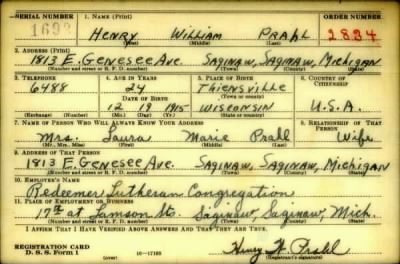 SERIAL NUMBER 1. NAME (Print) ORDER NUMBER
1692 HENRY WILLIAM PRAHL 2884
(First) (Middle) (Last)
2. ADDRESS (Print)
1813 E. GENESEE AVE. SAGINAW, SAGINAW, MICHIGAN
(Number and street or R. F. D. number) (Town) (County) (State)
3. TELEPHONE 4. AGE IN YEARS 5. PLACE OF BIRTH 6. COUNTRY OF CITIZENSHIP
6488 24 THIENSVILLE
DATE OF BIRTH (Town or county)
12 19 1915 WISCONSIN U.S.A.
(Exchange) (Number) (Mo.) (Day) (Yr.) (State or country)
7. NAME OF PERSON WHO WILL ALWAYS KNOW YOUR ADDRESS 8. RELATIONSHIP OF THAT PERSON
Mrs. Laura Marie Prahl Wife
(Mr., Mrs., Miss) (First) (Middle) (Last)
9. ADDRESS OF THAT PERSON
1813 E. GENESEE AVE. SAGINAW, SAGINAW, MICHIGAN
(Number and street or R. F. D. number) (Town) (County) (State)
10. EMPLOYER'S NAME
Redeemer Lutheran Congregation
11. PLACE OF EMPLOYMENT OR BUSINESS
17th at Lamson Sts. Saginaw, Saginaw, Mich.
(Number and street or R. F. D. number) (Town) (County) (State)
I AFFIRM THAT I HAVE VERIFIED ABOVE ANSWERS AND THAT THEY ARE TRUE.
REGISTRATION CARD
D. S. S. Form 1 (over) 16—17105 Henry W. Prahl
(Registrant's signature)